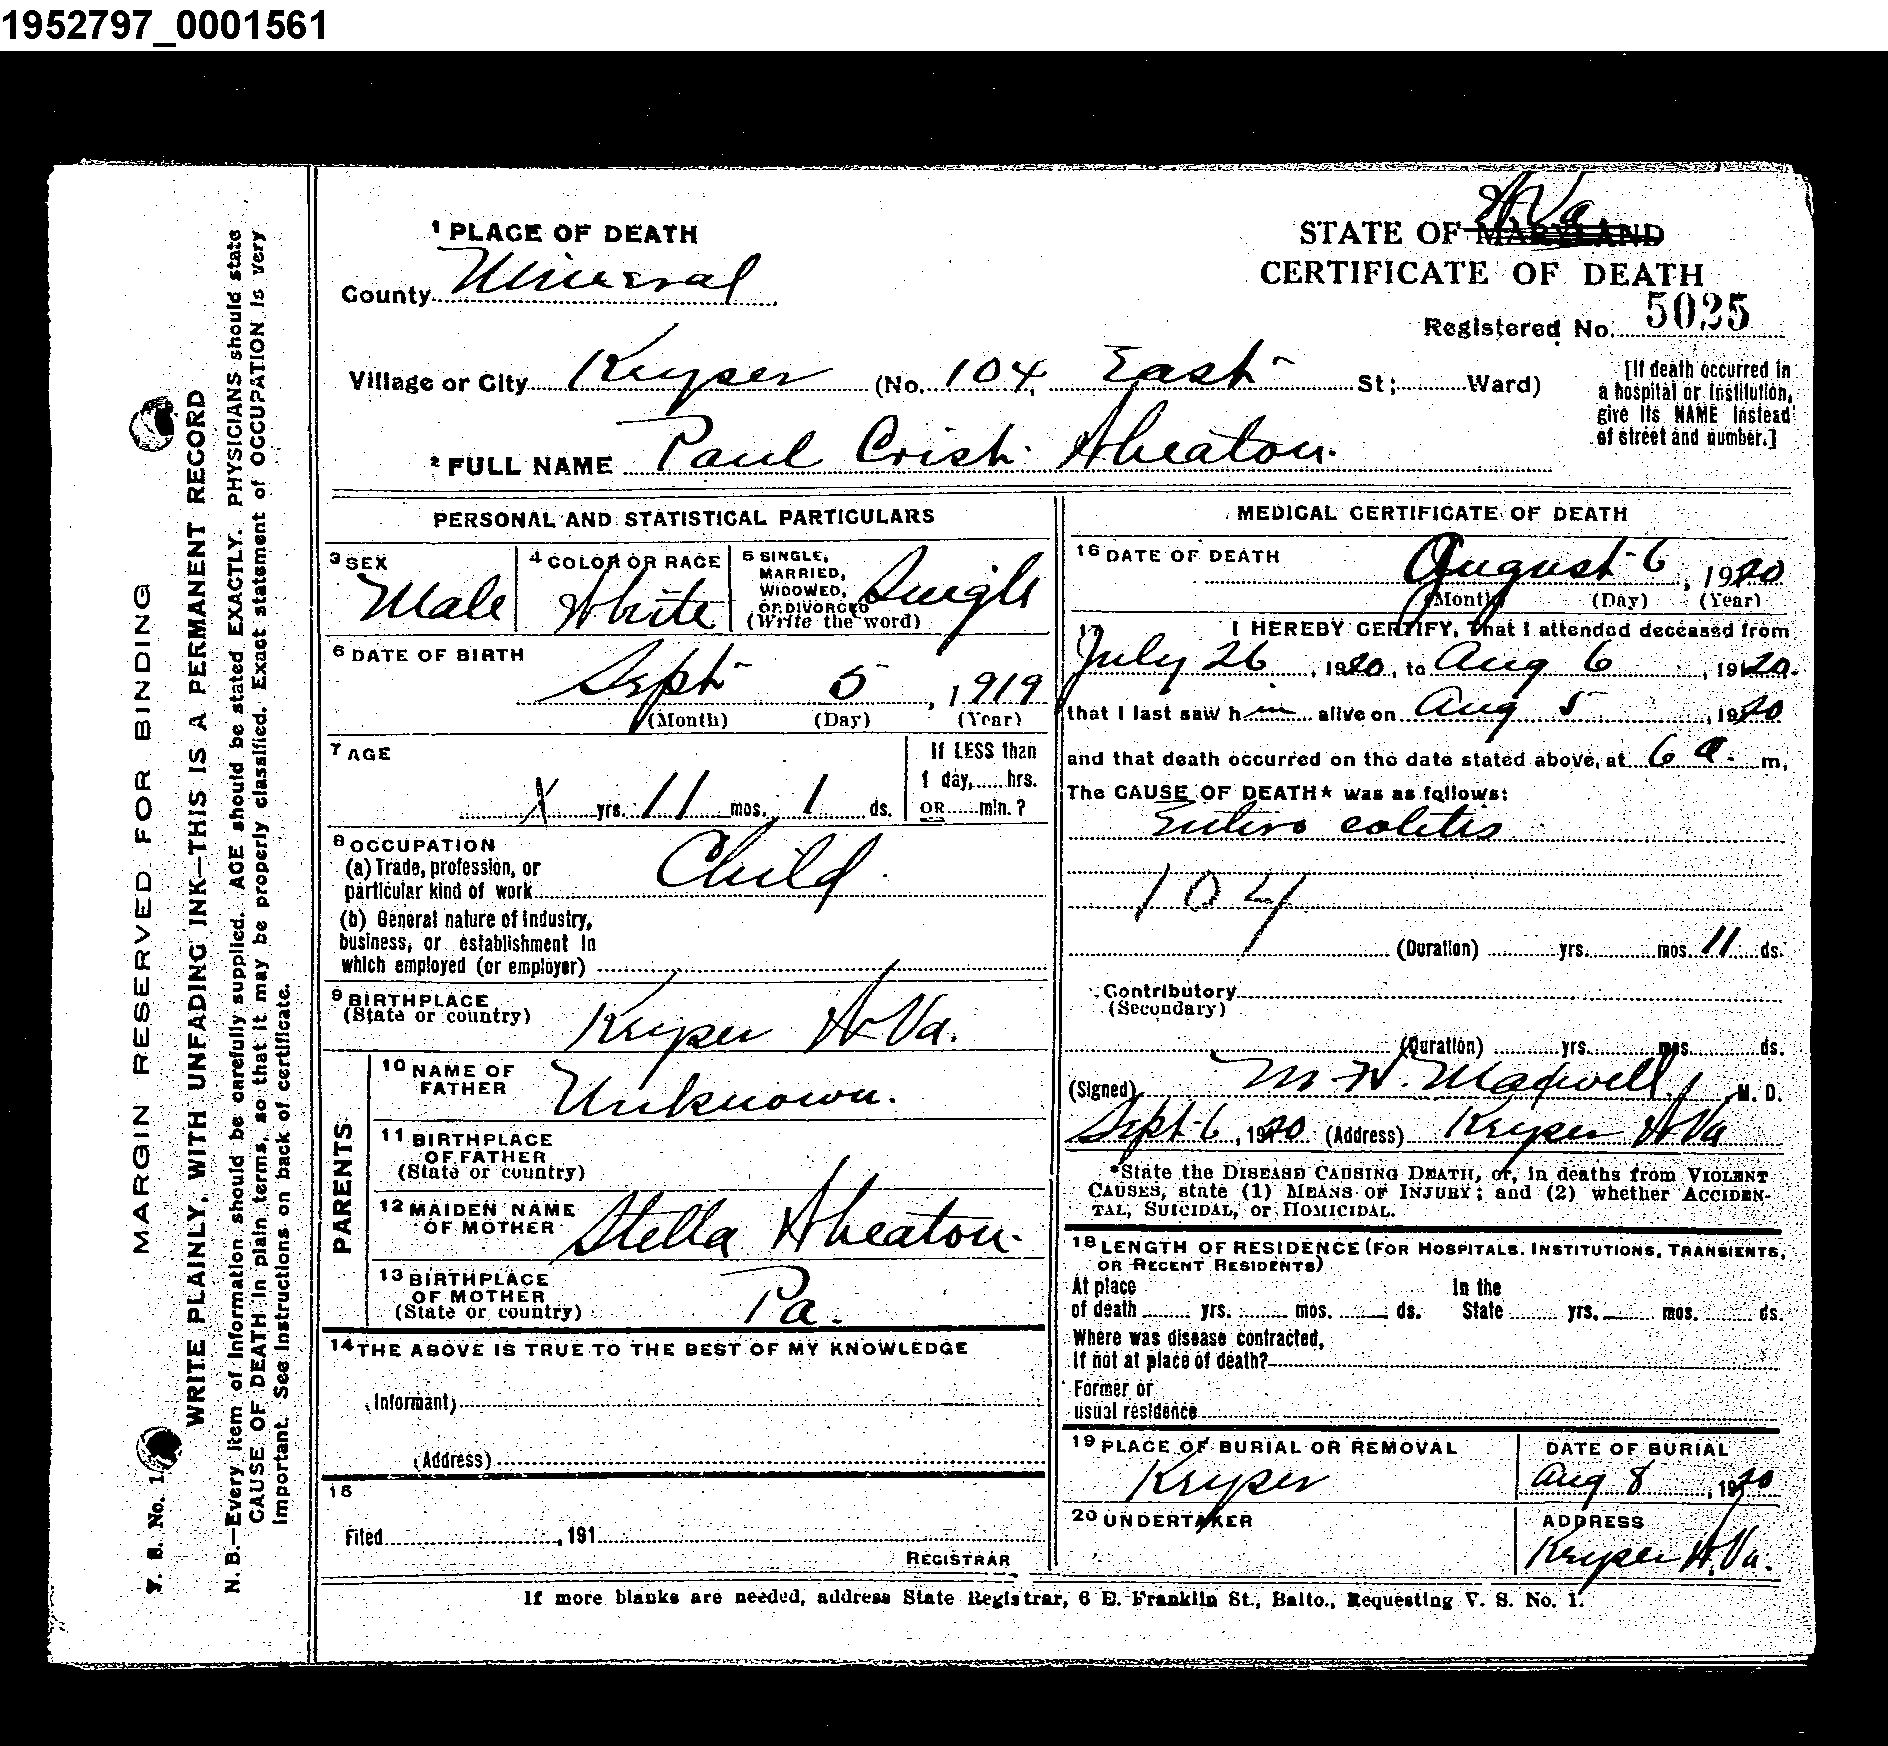 1952797_0001561
MARGIN RESERVED FOR BINDING
WRITE PLAINLY, WITH UNFADING INK—THIS IS A PERMANENT RECORD
N. B.—Every item of information should be carefully supplied. AGE should be stated EXACTLY. PHYSICIANS should state
CAUSE OF DEATH in plain terms, so that it may be properly classified. Exact statement of OCCUPATION is very
important. See instructions on back of certificate.
V. S. No. 1.
1 PLACE OF DEATH
County Mineral
STATE OF MARYLAND W Va
CERTIFICATE OF DEATH
Registered No. 5025
Village or City Keyser (No. 104 East St; Ward)
[If death occurred in
a hospital or institution,
give its NAME instead
of street and number.]
2 FULL NAME Paul Crish Wheaton.
PERSONAL AND STATISTICAL PARTICULARS
3 SEX Male
4 COLOR OR RACE White
5 SINGLE,
MARRIED,
WIDOWED,
OR DIVORCED
(Write the word) Single
6 DATE OF BIRTH
Sept 5, 1919
(Month) (Day) (Year)
7 AGE
X yrs. 11 mos. 1 ds.
If LESS than
1 day,......hrs.
OR......min.?
8 OCCUPATION
(a) Trade, profession, or
particular kind of work Child
(b) General nature of industry,
business, or establishment in
which employed (or employer)
9 BIRTHPLACE
(State or country) Keyser W Va.
PARENTS
10 NAME OF
FATHER Unknown.
11 BIRTHPLACE
OF FATHER
(State or country)
12 MAIDEN NAME
OF MOTHER Stella Wheaton.
13 BIRTHPLACE
OF MOTHER
(State or country) Pa.
14 THE ABOVE IS TRUE TO THE BEST OF MY KNOWLEDGE
(Informant)
(Address)
15
Filed, 191
REGISTRAR
MEDICAL CERTIFICATE OF DEATH
16 DATE OF DEATH August 6, 1920
(Month) (Day) (Year)
17 I HEREBY CERTIFY, That I attended deceased from
July 26, 1920, to Aug 6, 1920.
that I last saw him alive on Aug 5, 1920
and that death occurred on the date stated above, at 6 a. m.
The CAUSE OF DEATH* was as follows:
Entero colitis
104
(Duration) yrs. mos. 11 ds.
Contributory
(Secondary)
(Duration) yrs. mos. ds.
(Signed) M. H. Maxwell, M. D.
Sept 6, 1920 (Address) Keyser W Va
*State the DISEASE CAUSING DEATH, or, in deaths from VIOLENT
CAUSES, state (1) MEANS OF INJURY; and (2) whether ACCIDEN-
TAL, SUICIDAL, or HOMICIDAL.
18 LENGTH OF RESIDENCE (FOR HOSPITALS, INSTITUTIONS, TRANSIENTS,
OR RECENT RESIDENTS)
At place In the
of death yrs. mos. ds. State yrs. mos. ds.
Where was disease contracted,
if not at place of death?
Former or
usual residence
19 PLACE OF BURIAL OR REMOVAL
Keyser
DATE OF BURIAL
Aug 8, 1920
20 UNDERTAKER
ADDRESS
Keyser W. Va.
If more blanks are needed, address State Registrar, 6 E. Franklin St., Balto., Requesting V. S. No. 1.